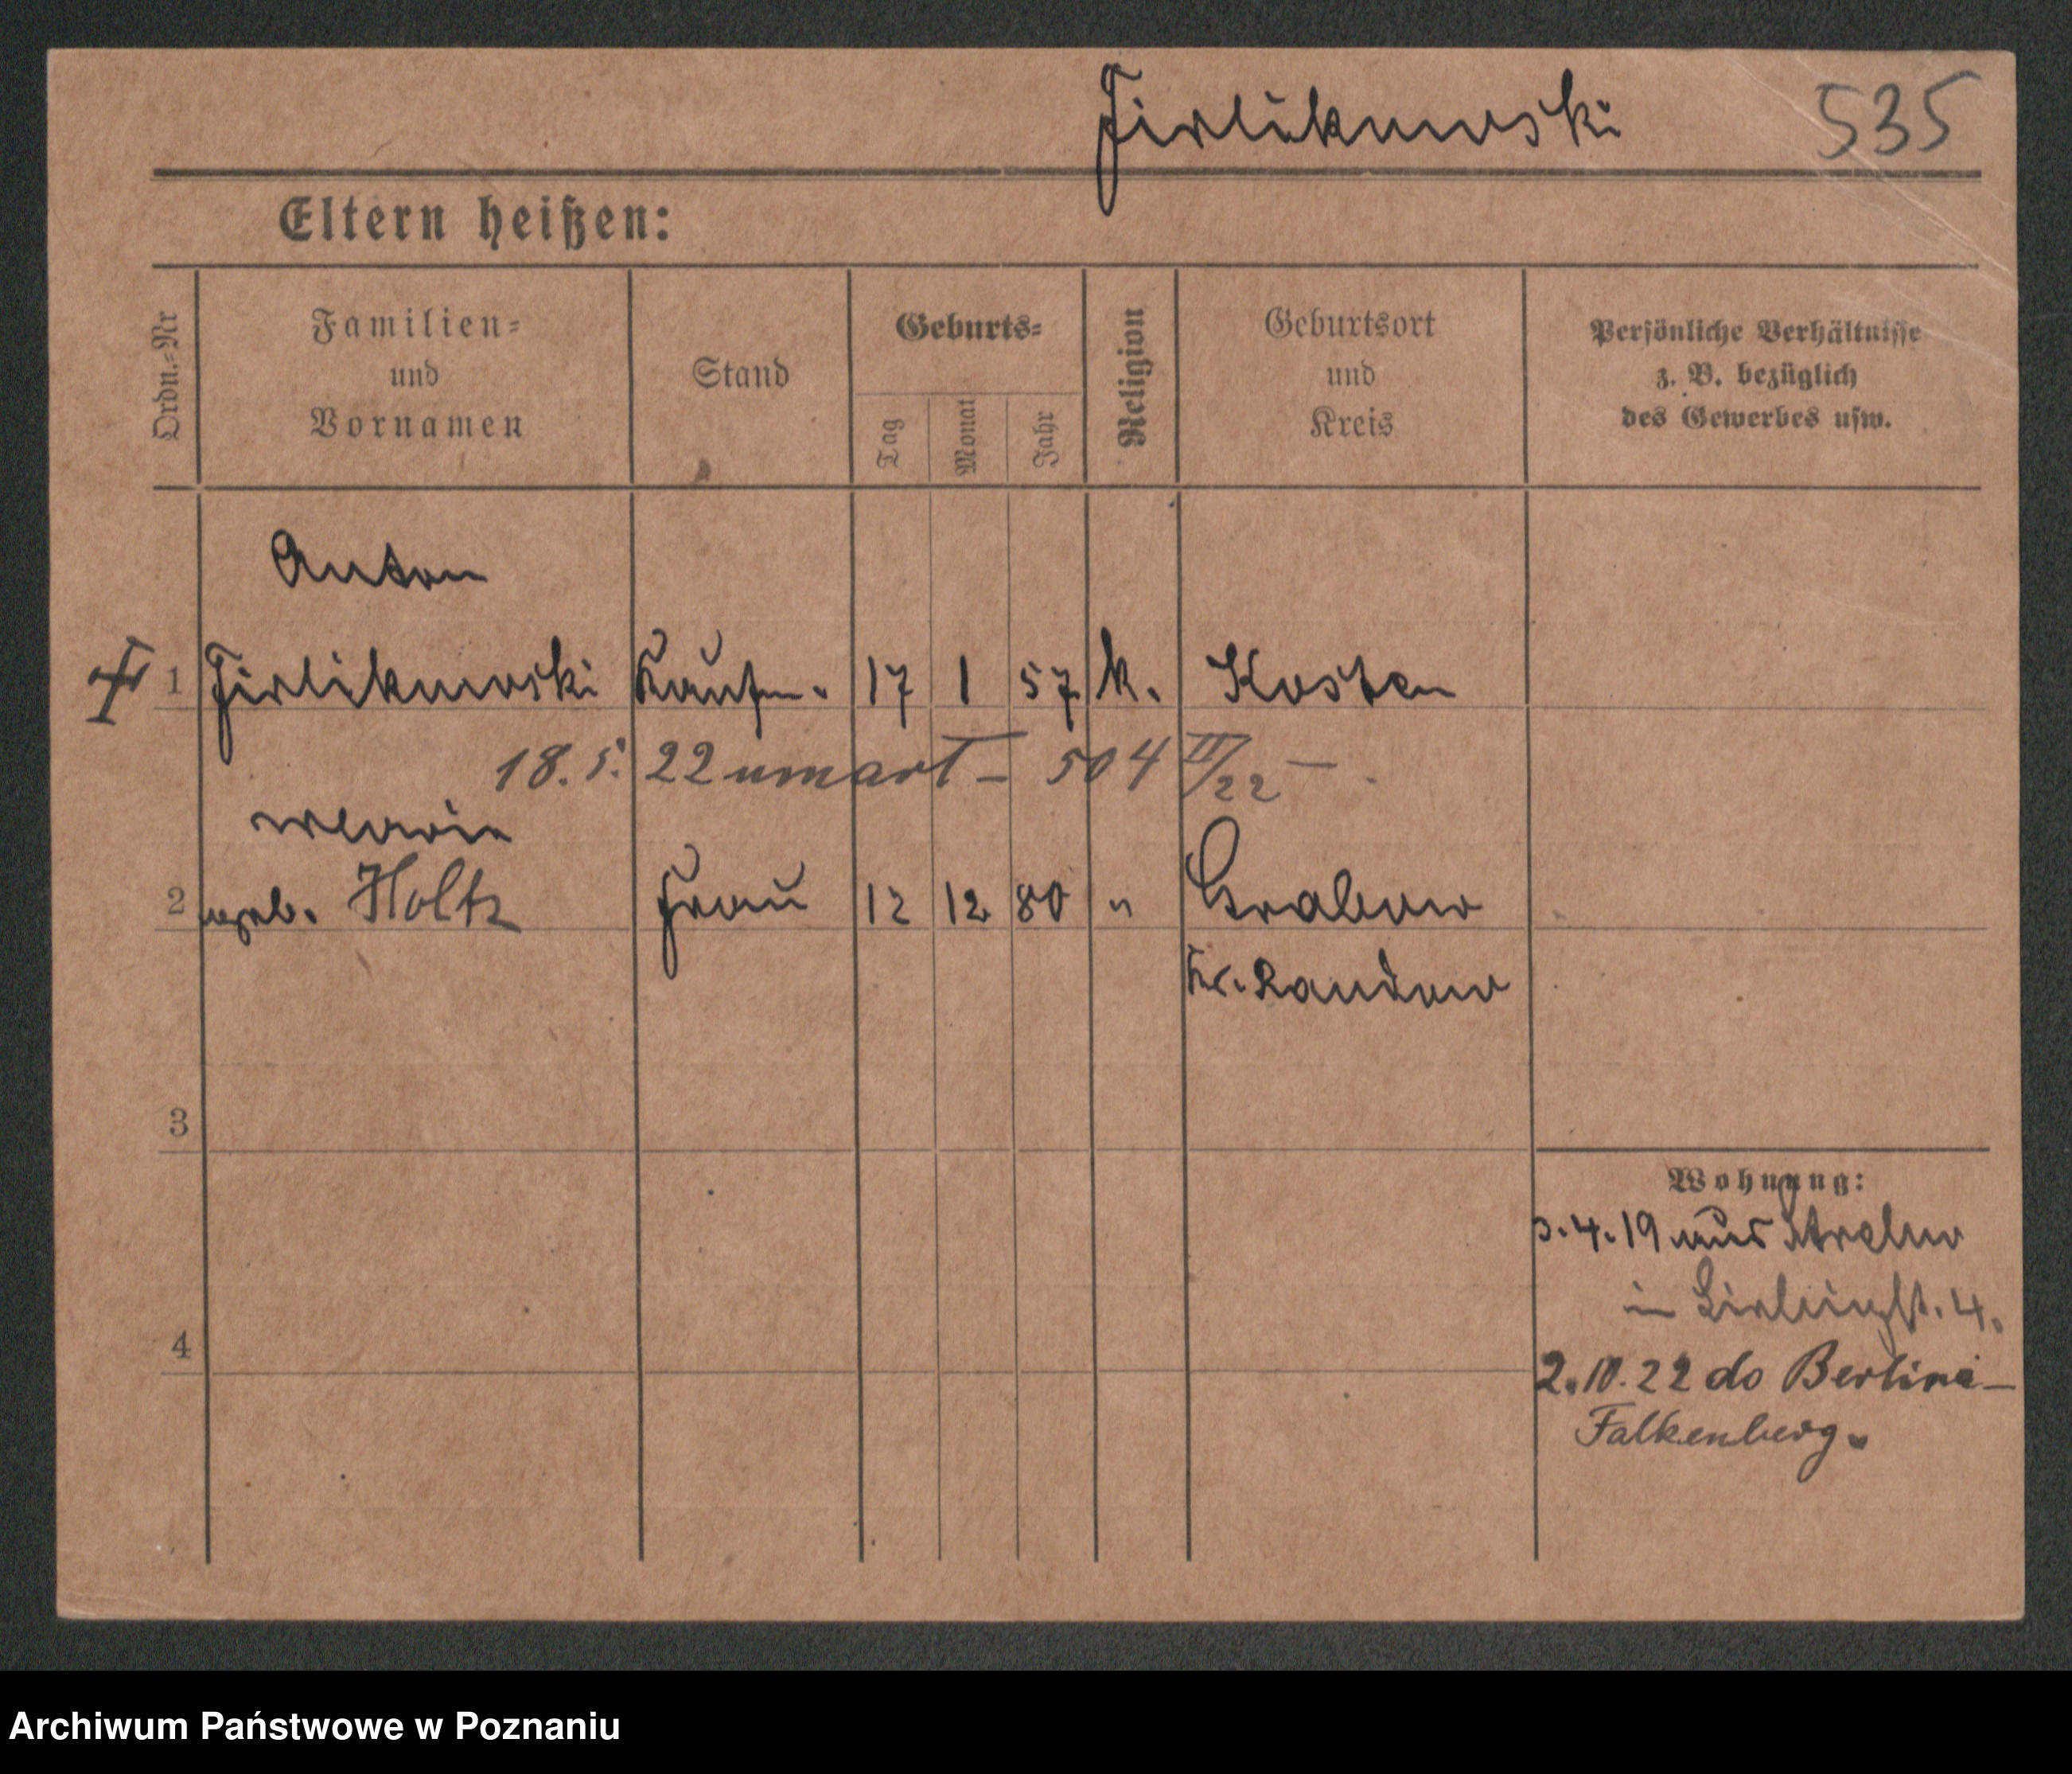 Firlikowski 535
Eltern heißen:
Ordn.-Nr
Familien-
und
Vornamen
Stand
Geburts-
Tag
Monat
Jahr
Religion
Geburtsort
und
Kreis
Persönliche Verhältnisse
z. B. bezüglich
des Gewerbes usw.
Anton
1 Firlikowski Kaufm. 17 1 57 k. Kosten
18. 5. 22 umarł – 504 II/22 –
Maria
2 geb. Holtz Frau 12 12 80 " Grabow
Kr. Randow
3
4
Wohnung:
3.4.19 aus Strelno
in 4.
2.10.22 do Berlina–
Falkenberg.
Archiwum Państwowe w Poznaniu